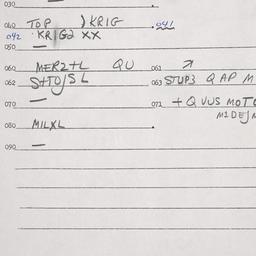 030
040 TOP ) KRIG . 041
042 · KRIG2 XX
050 —
060 MER2+L QU 061 ↗
062 S+TO/SL 063 STUP3 Q AP M
070 — 071 + Q VUS MOT
M1DE
080 MILXL .
090 —